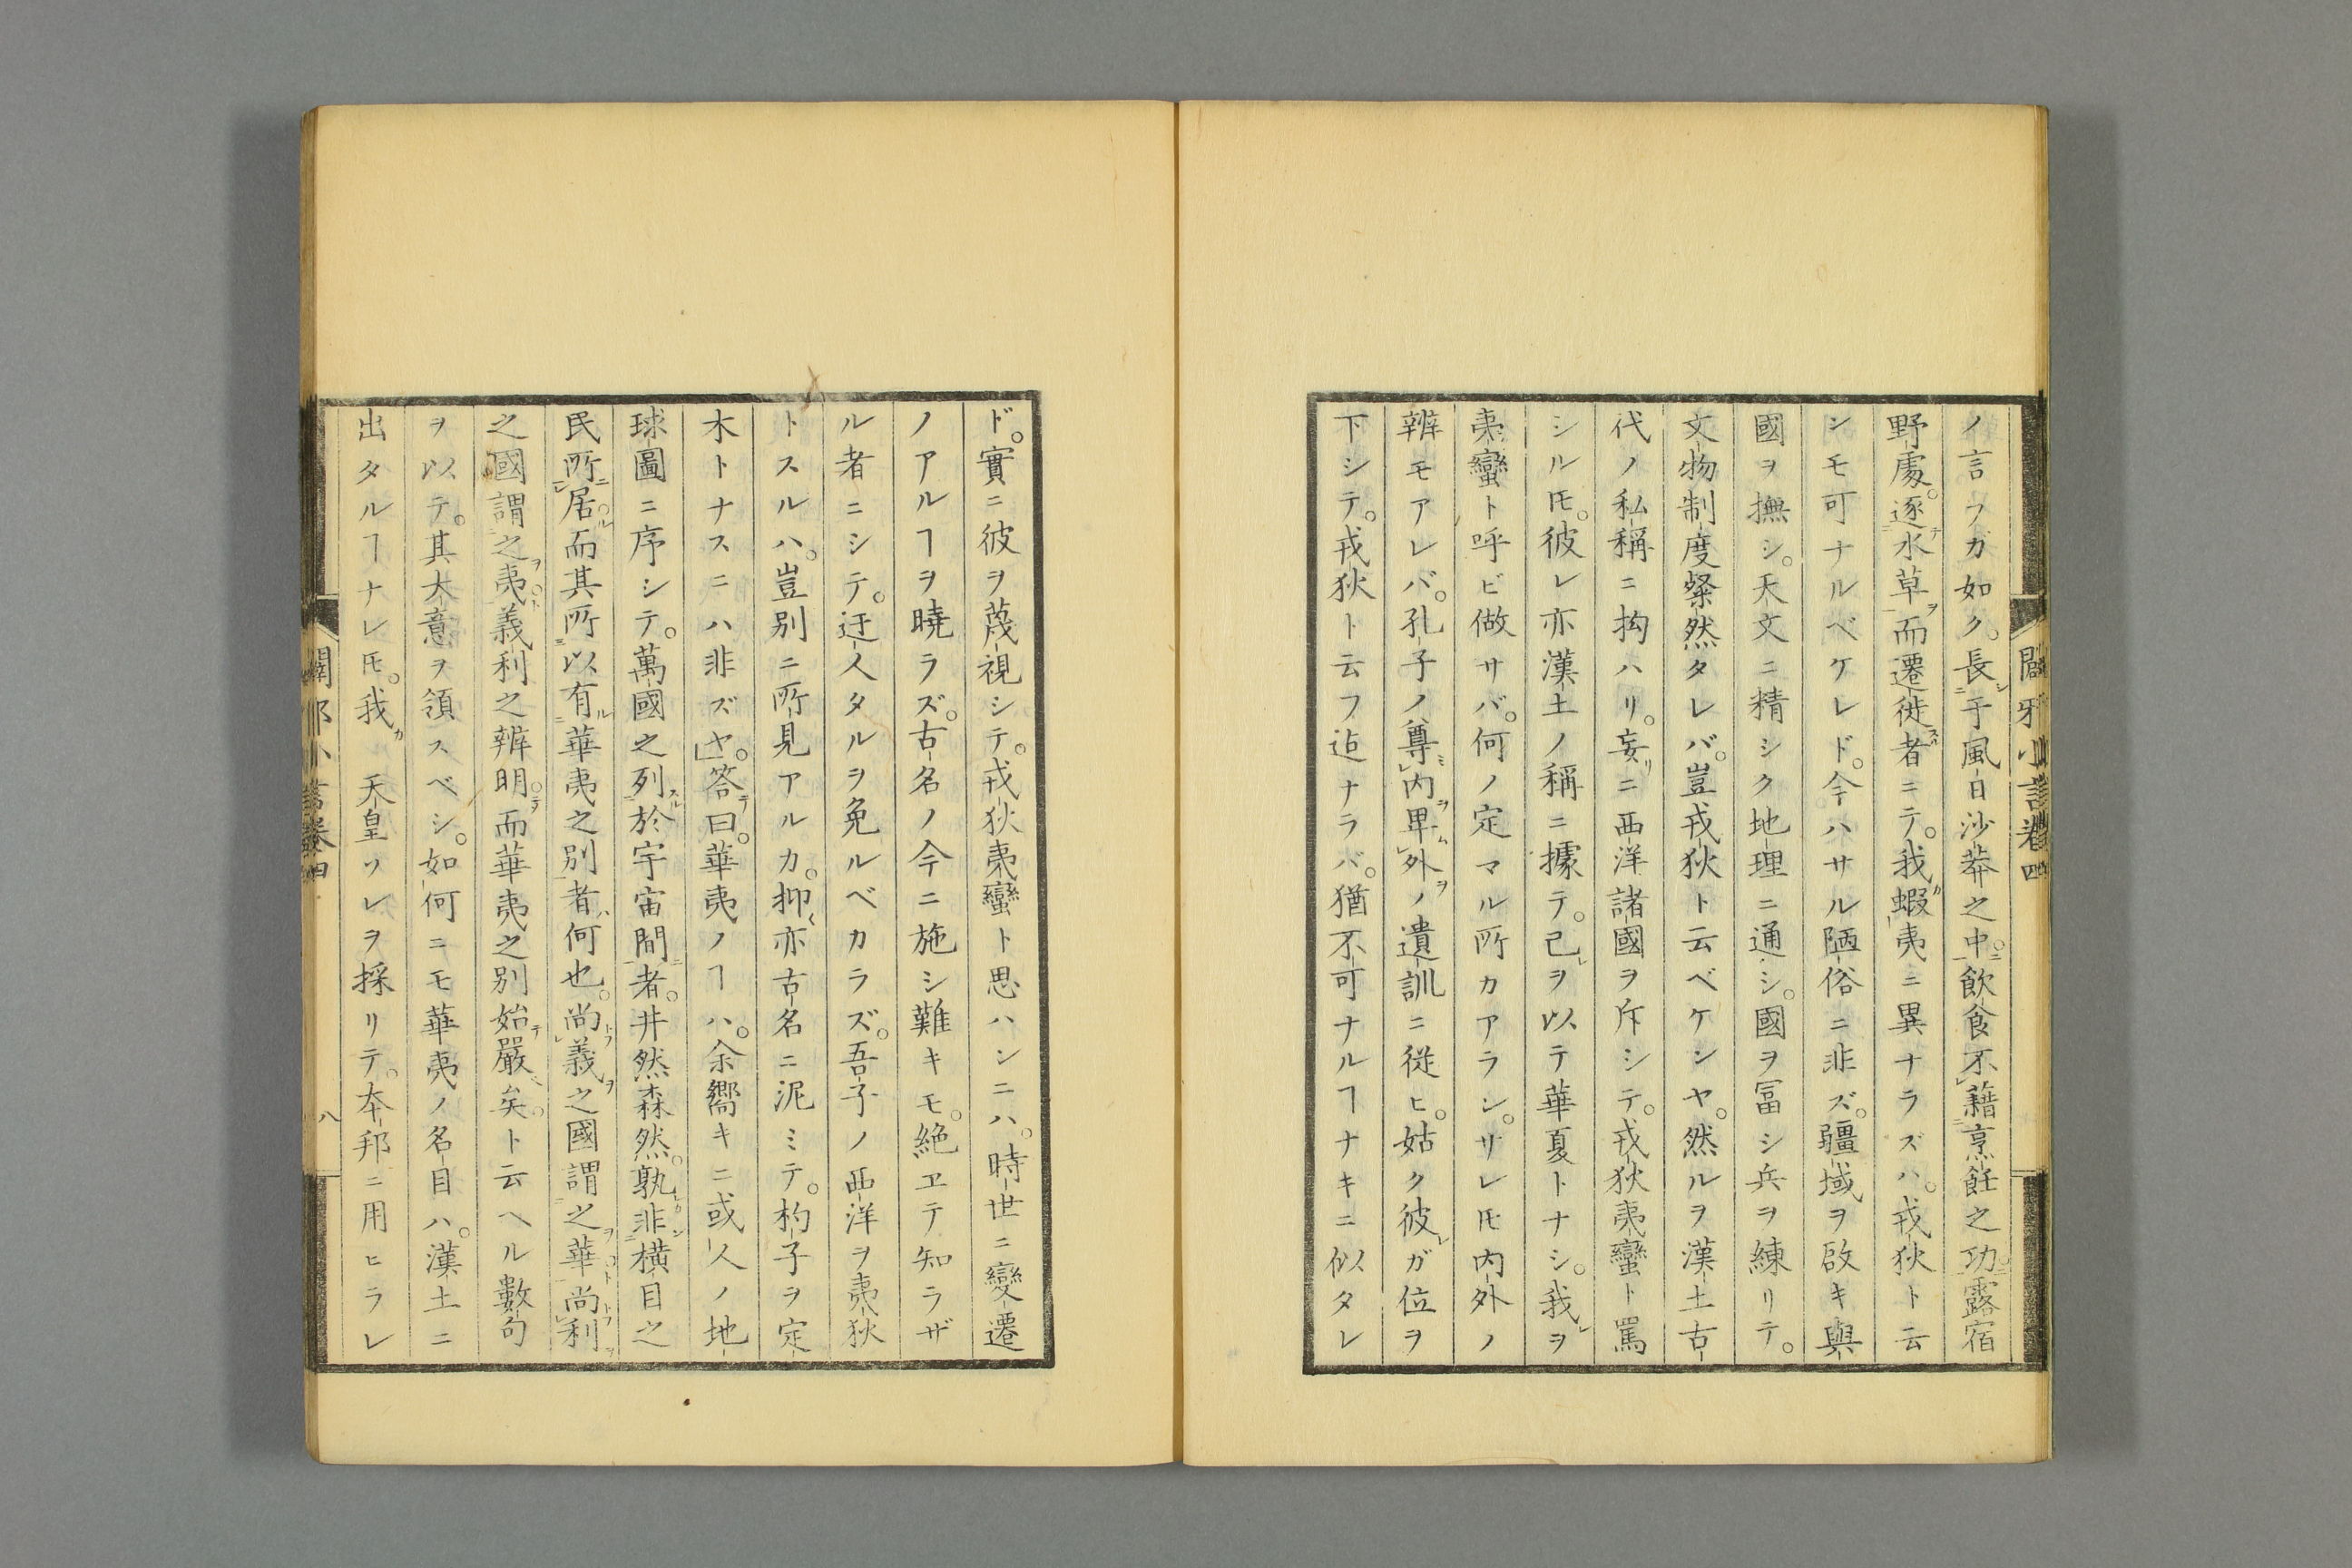 ノ言フガ如ク。長于風日沙莽之中飲食不藉烹飪之功露宿
野處。逐水草而遷徙者ニテ。我蝦夷ニ異ナラズハ。戎狄ト云
ンモ可ナルベケレド。今ハサル陋俗ニ非ズ。疆域ヲ啟キ與
國ヲ撫シ。天文ニ精シク地理ニ通シ。國ヲ冨シ兵ヲ練リテ。
文物制度粲然タレバ。豈戎狄ト云ベケンヤ。然ルヲ漢土古
代ノ私稱ニ拘ハリ。妄ニ西洋諸國ヲ斥シテ。戎狄夷蠻ト罵
シルㇳモ。彼レ亦漢土ノ稱ニ據テ。己ヲ以テ華夏トナシ。我ヲ
夷蠻ト呼ビ做サバ。何ノ定マル所カアラン。サレㇳモ内外ノ
辨モアレバ。孔子ノ尊内卑外ノ遺訓ニ従ヒ。姑ク彼ガ位ヲ
下シテ。戎狄ト云フ迠ナラバ。猶不可ナルヿナキニ似タレ
ド。實ニ彼ヲ蔑視シテ。戎狄夷蠻ト思ハンニハ。時世ニ變遷
ノアルヿヲ曉ラズ。古名ノ今ニ施シ難キモ。絶ヱテ知ラザ
ル者ニシテ。迂人タルヲ免ルベカラズ。吾子ノ西洋ヲ夷狄
トスルハ。豈別ニ所見アルカ。抑亦古名ニ泥ミテ。杓子ヲ定
木トナスニハ非ズヤ。」答曰。華夷ノヿハ。余嚮キニ或人ノ地
球圖ニ序シテ。萬國之列於宇宙間者。井然森然。孰非橫目之
民所居而其所以有華夷之別者何也。尚義之國謂之華尚利
之國謂之夷義利之辨明而華夷之別始嚴矣。ト云ヘル數句
ヲ以テ。其大意ヲ領スベシ。如何ニモ華夷ノ名目ハ。漢土ニ
出タルヿナレㇳモ。我 天皇ソレヲ採リテ。夲邦ニ用ヒラレ
闢邪小言卷四
八